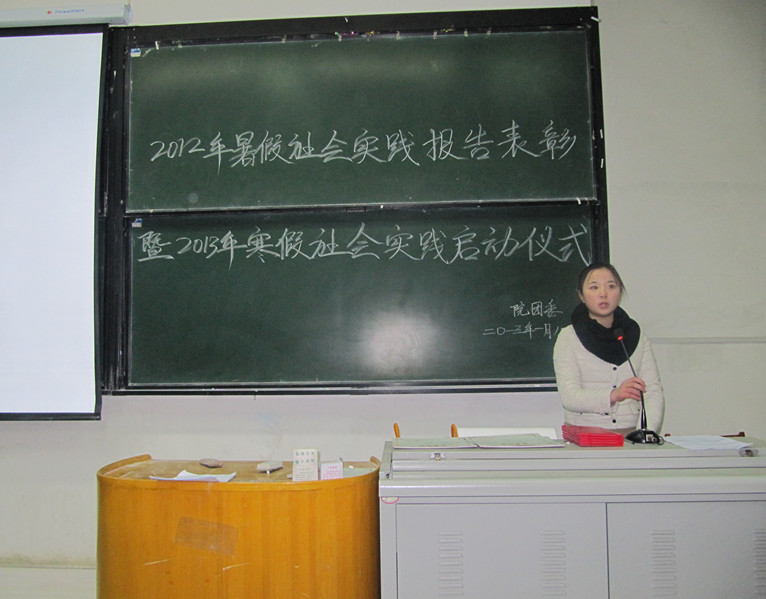 2012年暑假社会实践报告表彰
暨2013年寒假社会实践启动仪式
院团委
二〇一三年一月